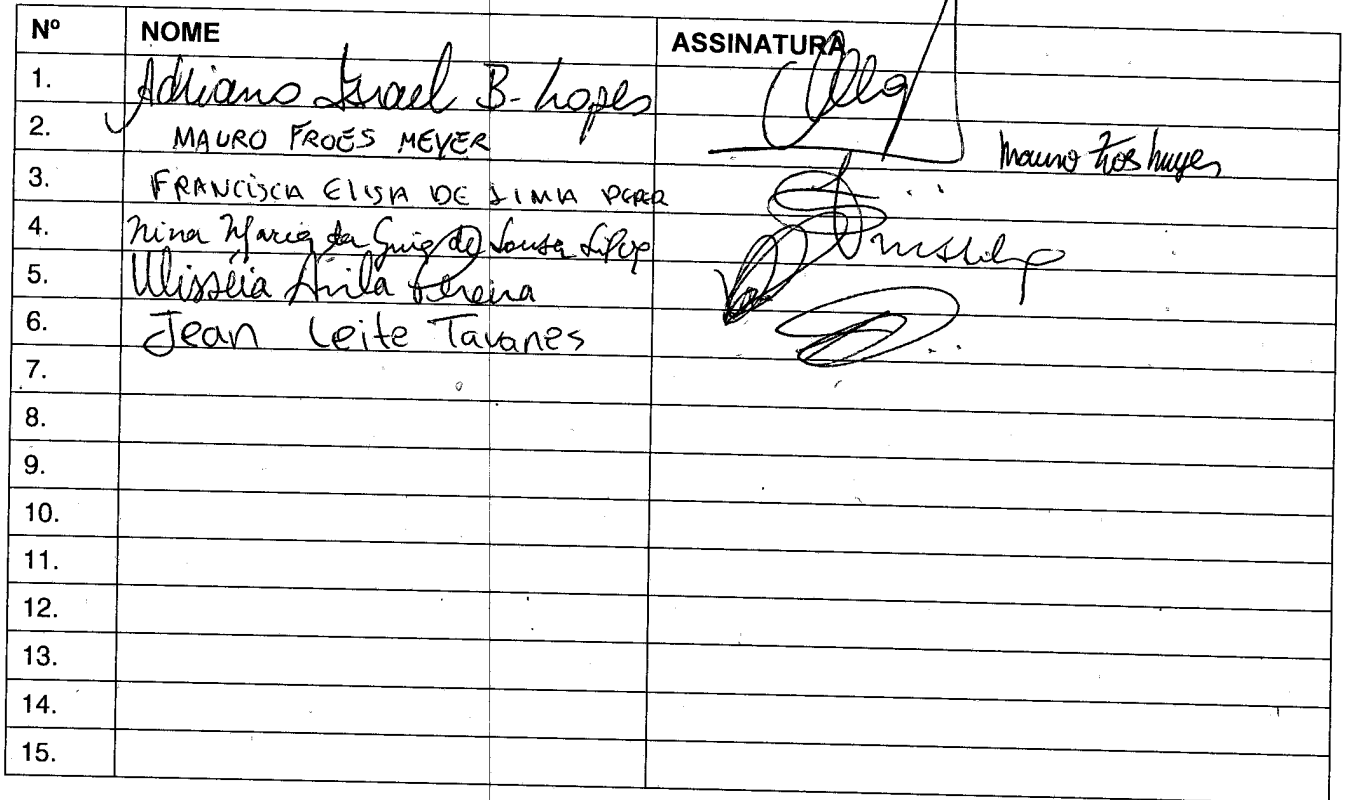 Nº NOME ASSINATURA
1. Adriano Israel B. Lopes
2. MAURO FROES MEYER Mauro Froes Meyer
3. FRANCISCA ELISA DE LIMA
4. Nina Maria da Guia de Sousa Silva
5. Ulisséia Ávila Pereira
6. Jean Leite Tavares
7.
8.
9.
10.
11.
12.
13.
14.
15.